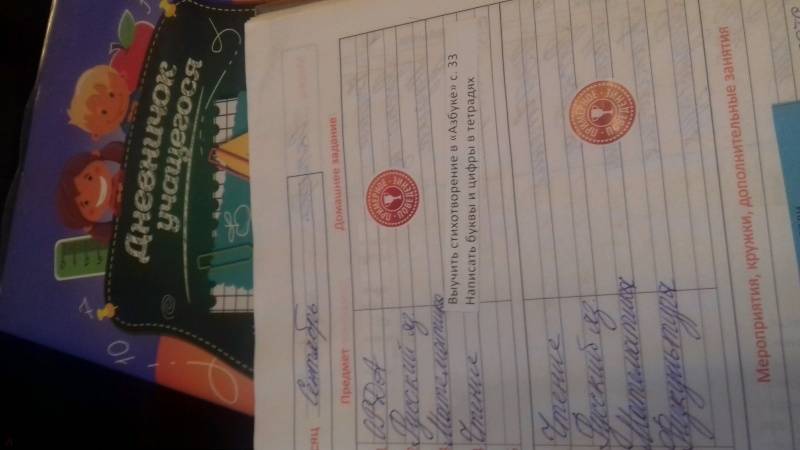 Дневничок
учащегося
10
сяц Сентябрь
Предмет Домашнее задание
Русский яз
Математика
Чтение
ПРИМЕРНОЕ ПОВЕДЕНИЕ
Выучить стихотворение в «Азбуке» с. 33
Написать буквы и цифры в тетрадях
Чтение
Русский яз
Математика
Физкультура
ПРИМЕРНОЕ ПОВЕДЕНИЕ
Мероприятия, кружки, дополнительные занятия